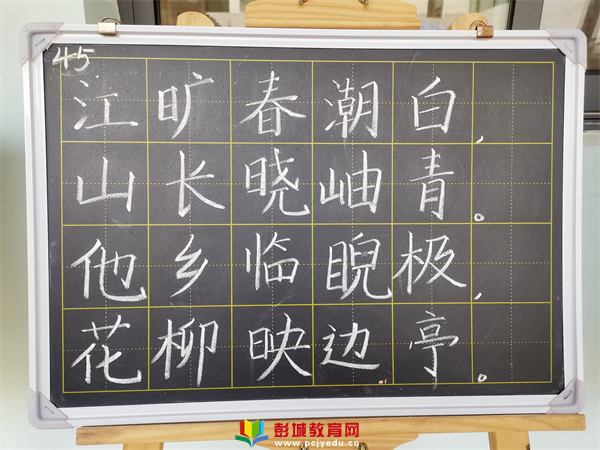 45
江旷春潮白,
山长晓岫青。
他乡临睨极,
花柳映边亭。
彭城教育网
www.pcjyedu.cn